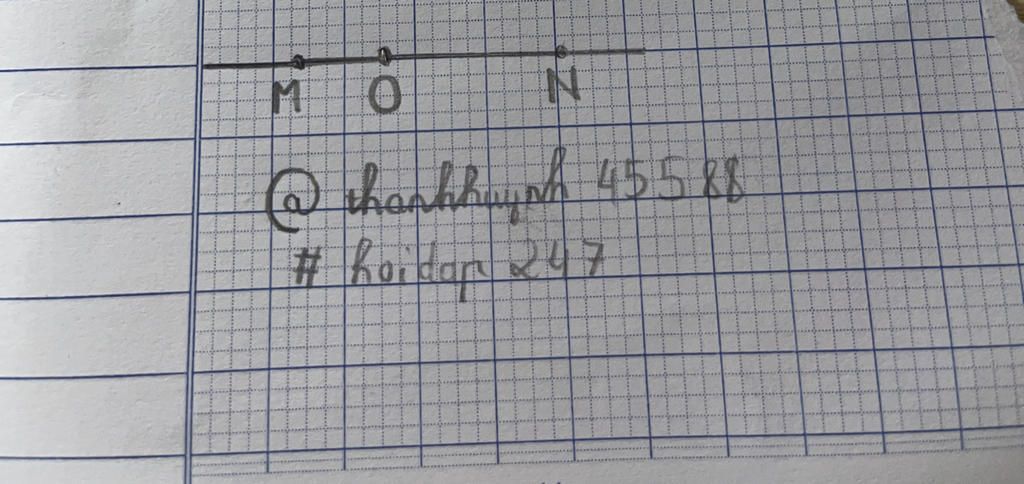 M O N
@ thanhhuynh 45588
# hoidap 247